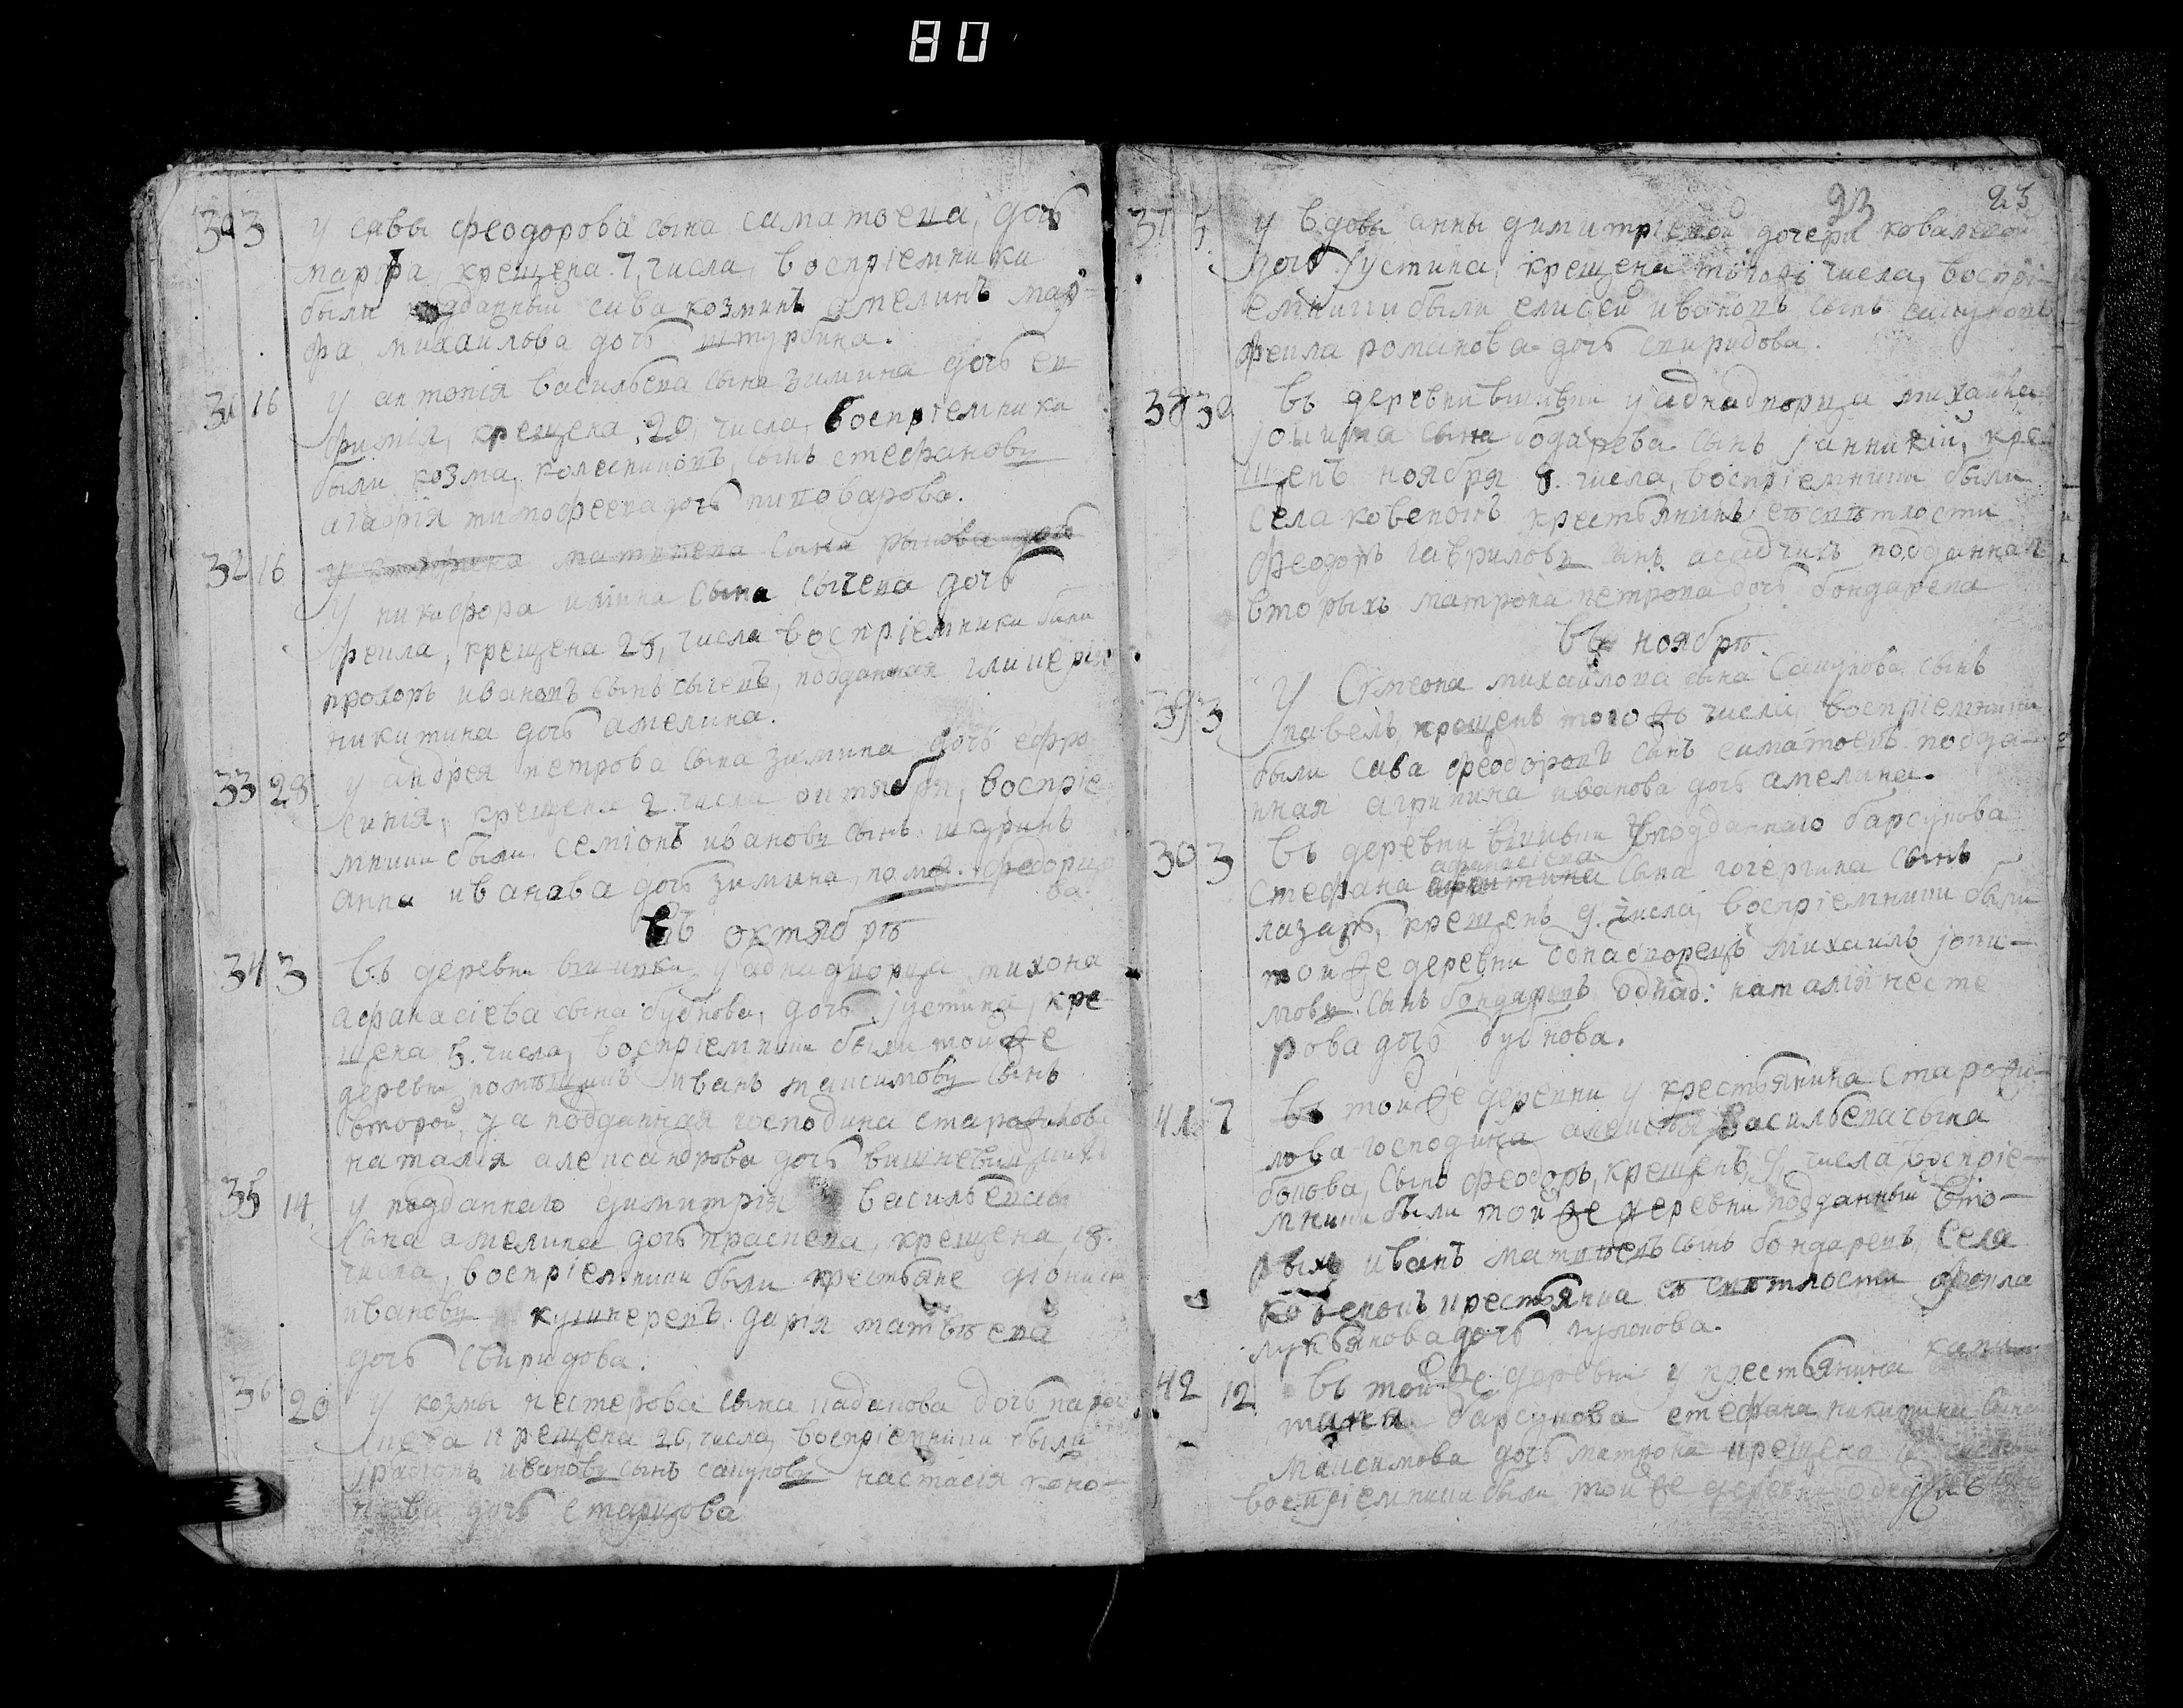 80
30 3 у савы феодорова сына саматоева, дочь
марфа крещена 7, числа, восприемники
были подданный сава козминъ амелинъ мар-
фа михаилова дочь штурбина.
31 16 у антонiя васильева сына зимина дочь ев-
фимiя, крещена, 20, числа, восприемники
были козма, колесниковъ, сынъ стефановъ
агафiя тимофеева дочь пивоварова.
32 16 у матвеева сына дочь
у никифора илiина сына сычева дочь
феила, крещена 28, числа восприемники были
прохоръ ивановъ сынъ сычевъ, подданная гликерiя
никитина дочь амелина.
33 28 у андрея петрова сына зимина дочь ефро-
синiя, крещена 2 числа октября, воспрiе-
мники были семiонъ ивановъ сынъ шкуринъ
анна иванова дочь зимина
ва.
въ октябрѣ
34 3 въ деревни у аднадворца тихона
афанасiева сына бубнова, дочь iустина, кре-
щена 5. числа, воспрiемники были той же
деревни помѣщикъ иванъ максимовъ сынъ
второй, да подданная господина старожилова
наталiя александрова дочь
35 14 у подданнаго димитрiя васильева
сына амелина дочь праскева, крещена, 18.
числа, воспрiемники были крестьяне дiонисiй
ивановъ кушнеревъ дарiя матвѣева
дочь свиридова.
36 20 у козмы нестерова сына дочь парас-
кева крещена 26, числа, воспрiемники были
iрадiонъ ивановъ сынъ сапуновъ настасiя коно-
нова дочь старикова
23 23
37 5 у вдовы анны димитрiевой дочери ковалевой
дочь iустина, крещена тогожъ числа, воспрi-
емники были елисей ивановъ сынъ сапуновъ
феила романова дочь спиридова.
38 30 въ деревни у аднадворца михаила
сына бодарева сынъ iанникiй, кре-
щенъ ноября 8. числа, воспрiемники были
села крестьянинъ его свѣтлости
феодоръ гавриловъ сынъ асадчихъ подданная
вторыхъ матрона петрова дочь бондарева
въ ноябрѣ.
39 3 У Симеона михаилова сына Сапунова сынъ
павелъ, крещенъ того жъ числа, воспрiемники
были сава феодоровъ сынъ саматоевъ подда-
нная агрипина иванова дочь амелина.
30 3 въ деревни у подданнаго барсукова
афанасiева
стефана никитина сына гочергина сынъ
лазарь, крещенъ 9. числа, воспрiемники были
той же деревни однодворецъ михаилъ
мовъ сынъ бондаревъ однод: наталiя несте
рова дочь бубнова.
41 7 въ той же деревни у крестьянина старожи-
лова господина алексѣя васильева сына
бокова, сынъ феодоръ, крещенъ, 9, числа воспрiе-
мники были той же деревни подданный вто-
рыхъ иванъ матвѣевъ сынъ бондаревъ, села
крестьянка его свѣтлости феила
лукьянова дочь
42 12 въ той же деревни у крестьянина капи-
тана барсукова стефана никитина сына
максимова дочь матрона крещена числа
воспрiемники были той же деревни